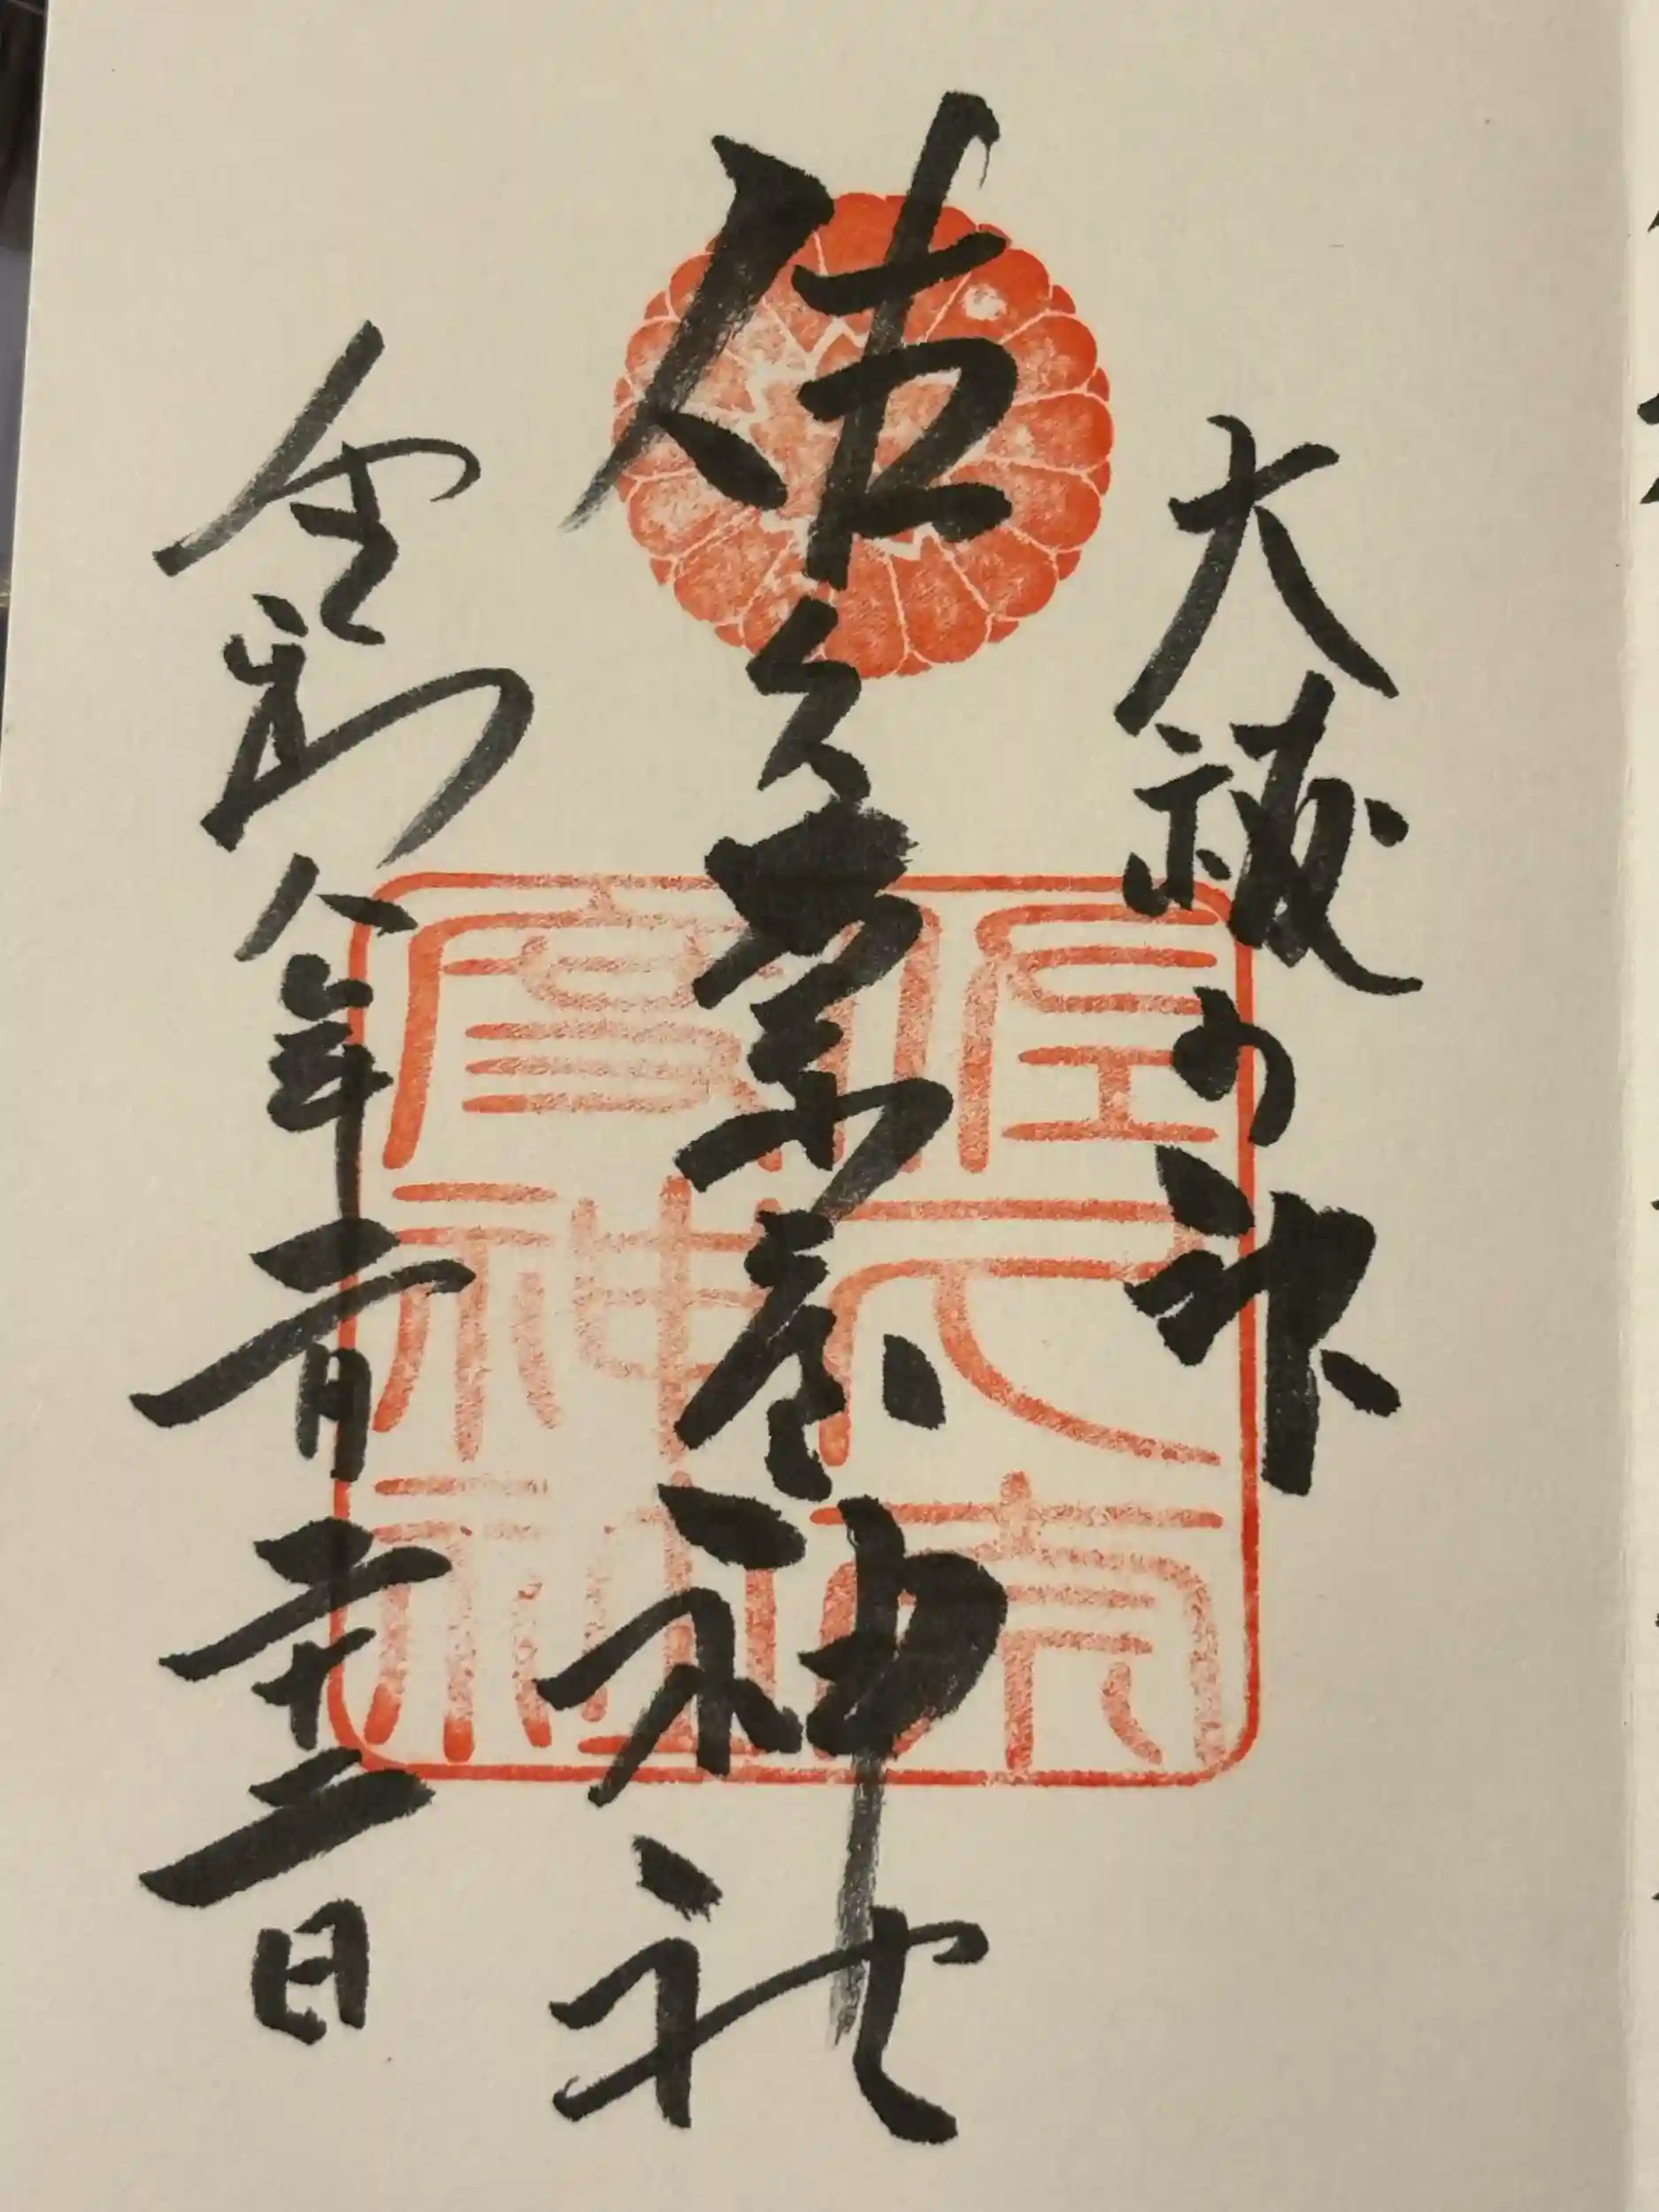 大祓の神
佐久奈度神社
令和八年二月二十二日
佐久奈
度神社